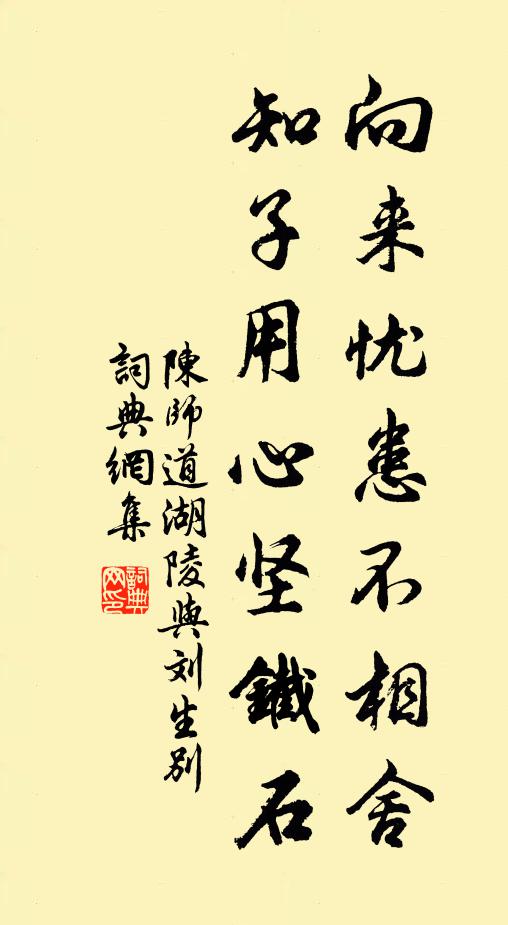 向来忧患不相舍
知子用心坚鐵石
陳師道湖陵與刘生别
詞典網集
詞典
网印